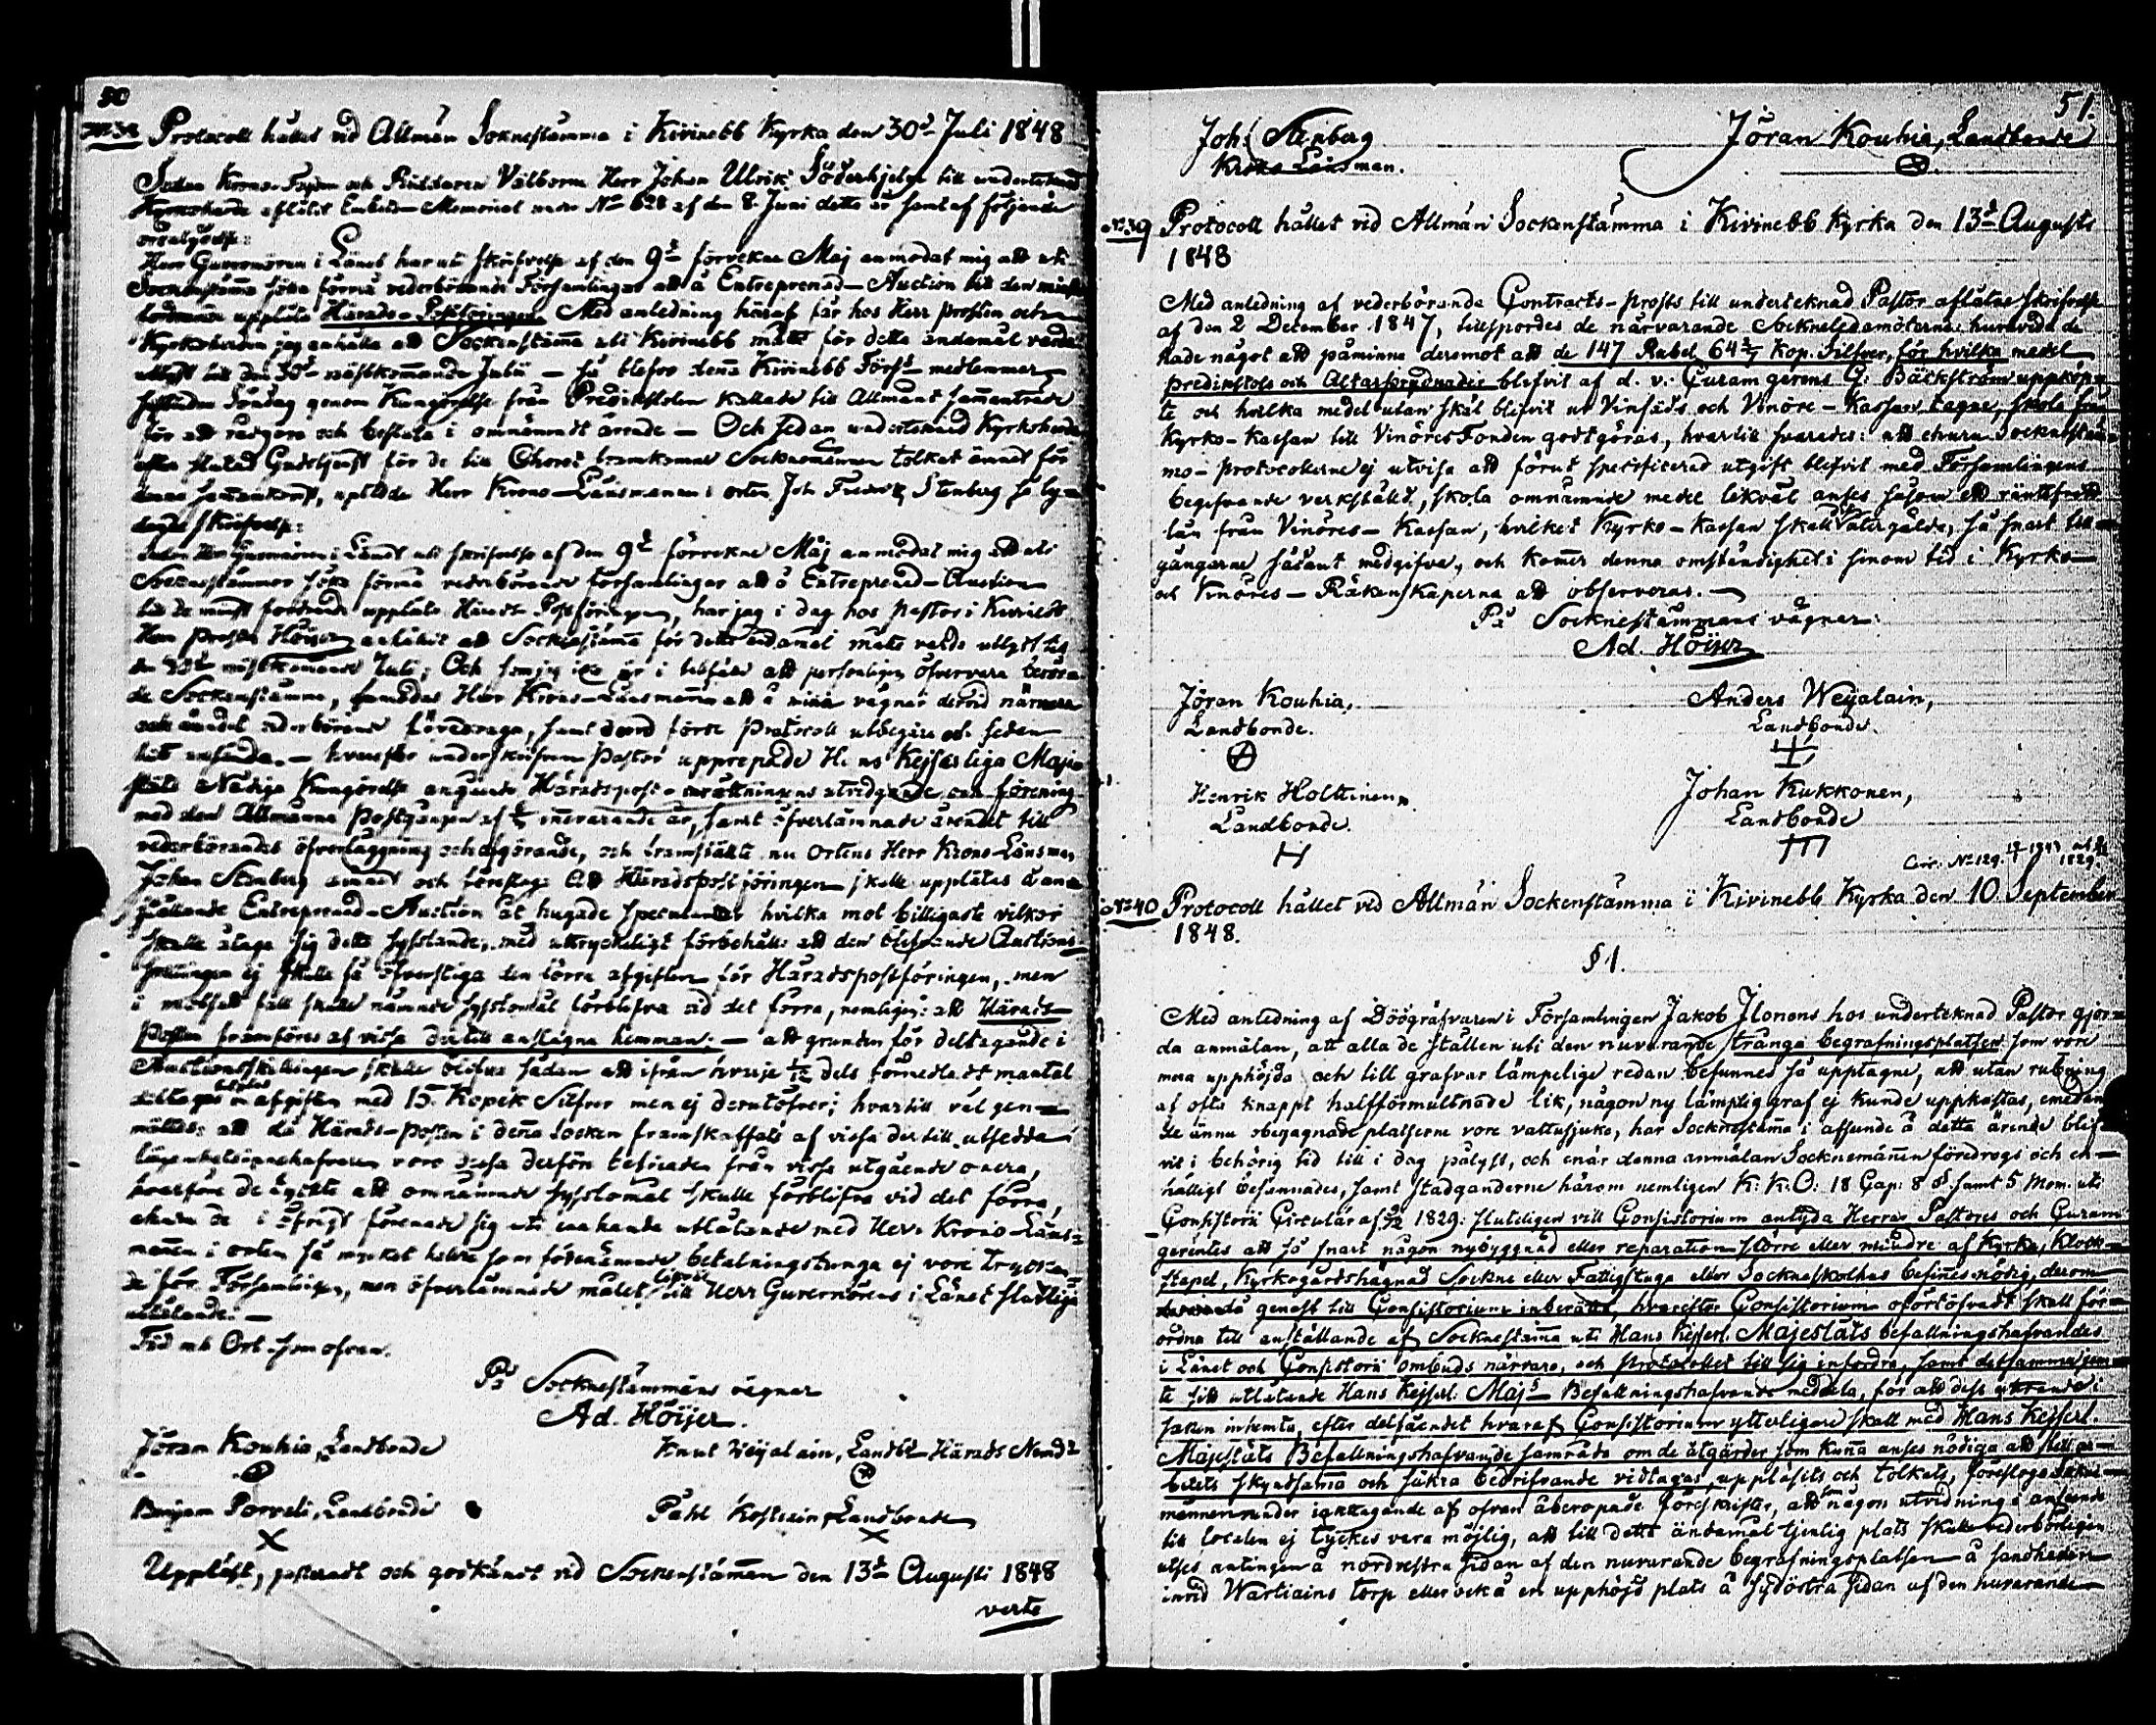 50
Nº 38 Protocoll hållet vid Allmän Soknestämma i Kivinebb Kyrka den 30de Juli 1848
Sedan Krono-Fogden och Riddaren Välborne Herr Johan Ulrik Söderhjelm till undertecknad
Kyrkoherde aflåtit Embets-Memorial under Nº 628 af den 8 Juni detta år samt af följande
ordalydelse:
Herr Guvernören i Länet har uti skrifvelse af den 9de förvekne Maj anmodat mig att uti
Sockenstämma söka förmå vederbörande Församlingar att å Entreprenad-Auction till den minst
fordrande upplåta Härads-Postföringen. Med anledning häraf får hos Herr Prosten och
Kyrkoherden jag anhålla att Sockenstämma uti Kivinebb måtte för detta ändamål varda
utlyst till den 30de nästkommande Julii — så blefvo denna Kivinebb Förs:s medlemmar
sistliden Söndag genom Kungörelse från Predikstolen kallade till Allmänt sammanträde
för att rådgöra och besluta i omnämndt ärende — Och sedan undertecknad Kyrkoherde
efter slutad Gudstjenst för de till Choret framkomne Socknemännen tolkat ämnet för
denna sammankomst, uppläste Herr Krono-Länsmannen i orten Joh Fredrik Stenberg så ly-
dande skrifvelse:
Sedan Herr Guvernören i Länet uti skrifvelse af den 9de förvekne Maj anmodat mig att uti
Sockenstämmor söka förmå vederbörande församlingar att å Entreprenad-Auction
till de minst fordrande upplåta Härads Postföringen, har jag i dag hos Pastor i Kivinebb
Herr Prosten Höijer anhållit att Socknestämma för detta ändamål måtte varda utlyst till
den 30de nästkommande Juli; Och som jag icke är i tillfälle att personligen öfvervara berör-
de Sockenstämma, anmodas Herr Krono-Länsmannen att å mina vägnar dervid närvara
och ämnet vederbörande föredraga, samt dervid förde Protocoll utbegära och sedan
hit insända. — hvarefter underskrifven Pastor upprepade Hans Kejserliga Maje-
stäts Nådiga Kungörelse angående Häradspost-inrättningens utvidgande och förening
med den Allmänna Postgången af innevarande år, samt öfverlämnade ärendet till
vederbörandes öfverläggning och afgörande, och framställte nu Ortens Herr Krono-Länsman
Johan Stenberg ämnet och föreslog Att Häradspostföringen skulle upplåtas å an-
ställande Entreprenad-Auction åt hugade spekulanter hvilka mot billigaste vilkor
skulle åtaga sig detta sysslande, med uttryckeligt förbehåll: att den blifvande Auctions-
summan ej skulle få öfverstiga den förra afgiften för Häradspostföringen, men
i motsatt fall skulle nämnde sysslomål förblifva vid det förra, nemligen: att Härads-
Posten framföres af vissa dertill anslagna hemman; — att grunden för deltagande i
Auctionsskillingen skulle blifva sådan att ifrån hvarje 1/12 dels förmedladt mantal
deltages i afgiften med 15 Kopek Silfver men ej derutöfver; hvartill väl gen-
mältes: att då Härads-Posten i denna socken framskaffats af vissa dertill utsedda
lägenhetsinnehafvare vore dessa derför befriade från vissa utgående onera,
hvarföre de tyckte att omnämnde sysslomål skulle förblifva vid det förra,
ehuru de i öfrigt förenade sig uti enahanda utlåtande med Herr Krono-Läns-
mannen i orten så mycket heldre som förenämnde betalningstunga ej vore tryckan-
de för Församlingen, men öfverlämnade målet till Herr Guvernörens i Länet slutliga
utlåtande. —
Tid och Ort som ofvan.
På Socknestämmans vägnar
Ad. Höijer.
Jöran Kouhia, Landbonde
Knut Weijalain, Landb: Härads Nemd:
Benjam Porveli, Landbonde
Påhl Kostiain, Landbonde
X
X
Uppläst, justeradt och godkändt vid Sockenstämman den 13de Augusti 1848
verte
51.
Joh: Stenberg
Krono Länsman.
Jöran Kouhia, Landbonde
Nº 39 Protocoll hållet vid Allmän Sockenstämma i Kivinebb Kyrka den 13de Augusti
1848
Med anledning af vederbörande Contracts-prosts till underteknad Pastor aflåtne skrifvelse
af den 2 December 1847, tillspordes de närvarande Sockneledamöterne huruvida de
hade något att påminna deremot att de 147 Rubel 64 2/7 Kop. Silfver, för hvilka medel
predikstols och Altarprydnader blefvit af d. v. Curam gerens G: Bäckström uppköp-
te och hvilka medel utan skäl blifvit ur Vinsäds och Vinöre-Kassan tagne, skola från
Kyrko-Kassan till Vinöres Fonden godtgöras, hvartill svarades: att ehuru Socknestäm-
mo-protocollerne ej utvisa att förut specificerad utgift blefvit med Församlingens
begifvande verkställd, skola omnämnde medel likväl anses såsom ett räntefritt
lån från Vinöres-Kassan, hvilket Kyrko-Kassan skall återgälda, så snart till-
gångarne sådant medgifva, och kommer denna omständighet i sinom tid i Kyrko-
och Vinöres-Räkenskaperna att observeras. —
På Socknestämmans vägnar:
Ad. Höijer
Jöran Kouhia,
Landbonde.
Anders Weijalain,
Landbonde.
Henrik Holttinen,
Landbonde.
Johan Kukkonen,
Landbonde
Circ: Nº 129.
1829.
Nº 40 Protocoll hållet vid Allmän Sockenstämma i Kivinebb Kyrka den 10. September
1848.
§ 1.
Med anledning af Dödgräfvaren i Församlingen Jakob Ilonens hos underteknad Pastor gjor-
da anmälan, att alla de ställen uti den nuvarande trånga begrafningsplatsen som vore
mera upphöjda och till grafvar lämpelige redan befunnes så upptagne, att utan rubbning
af ofta knappt halfförmultnade lik, någon ny lämplig graf ej kunde uppkastas, emedan
de ännu obegagnade platserne vore vattusjuke, har Socknestämma i afseende å detta ärende blif-
vit i behörig tid till i dag pålyst, och enär denna anmälan Socknemännen föredrogs och en-
hälligt besannades, samt stadganderne härom nemligen K: K: O: 18 Cap: 8 §. samt 5 Mom. uti
Consistorii Circulär af 1829: slutligen vill Consistorium antyda Herrar Pastores och Curam
gerentes att så snart någon nybyggnad eller reparation större eller mindre af Kyrka, Klock-
stapel, Kyrkogårdshägnad Sockne eller Fattigstuga eller Sockneskolhus befinnes nödig, derom
genast till Consistorium inberätta, hvarefter Consistorium oförtöfvadt skall för-
ordna till anställande af Socknestämma uti Hans Kejserl. Majestäts befallningshafvandes
i Länet och Consistorii ombuds närvaro, och protocollet till sig infordra, samt detsamma jem-
te sitt utlåtande Hans Kejserl. Majs Befallningshafvande meddela, för att dess yttrande i
saken inhemta, efter delfåendet hvaraf Consistorium ytterligare skall med Hans Kejserl.
Majestäts Befallningshafvande samråda om de åtgärder som kunna anses nödiga att till ar-
betets skyndsamma och säkra bedrifvande vidtagas, upplästs och tolkats, föreslogo Sokne-
männerne under iakttagande af ofvan åberopade föreskrifter, att som någon utvidning i anseende
till localen ej tyckes vara möjlig, att till detta ändamål tjenlig plats skulle vederbörligen
utses antingen å nordvestra sidan af den nuvarande begrafningsplatsen å sandheden
invid Wartiains torp eller ock å en upphöjd plats å sydöstra sidan af den nuvarande